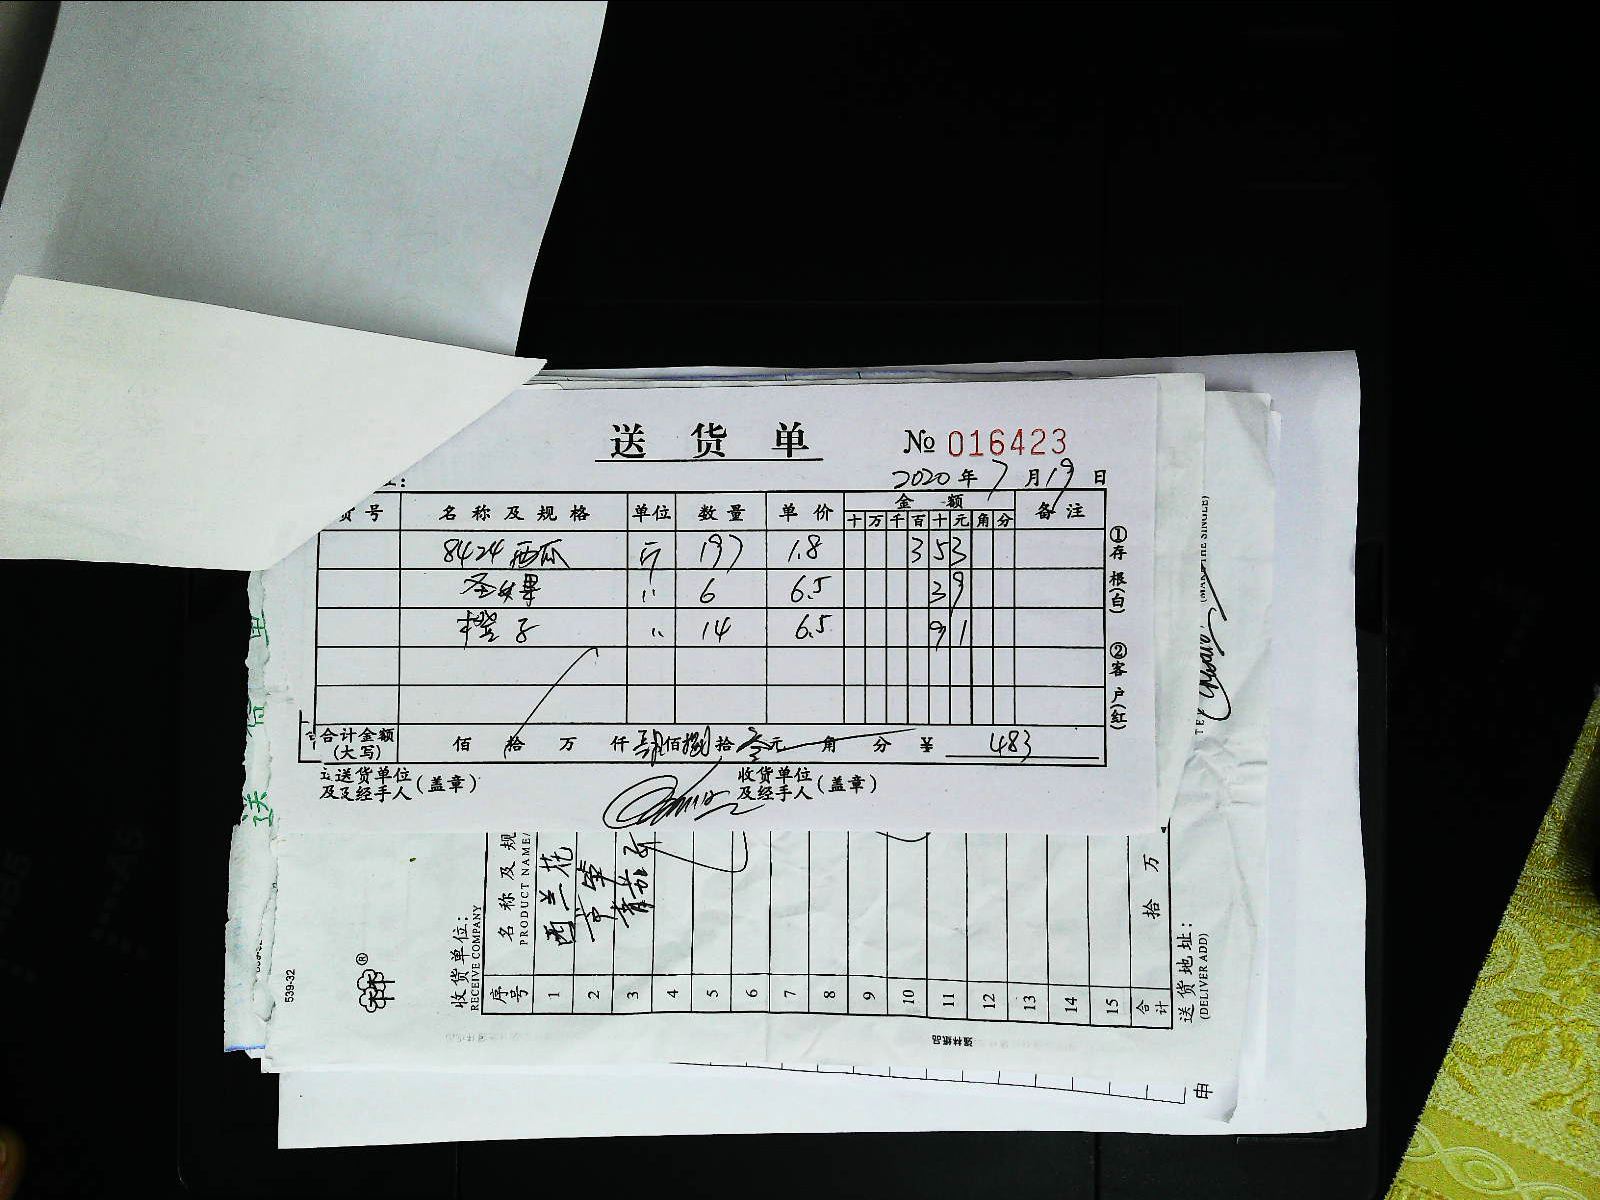 送 货 单 № 016423
2020 年 7 月 19 日
货号 名称及规格 单位 数量 单价 金额 备注
十 万 千 百 十 元 角 分
8424西瓜 斤 197 1.8 3 5 3
圣女果 〃 6 6.5 3 9
橙子 〃 14 6.5 9 1
合计金额(大写) 佰 拾 万 仟 肆佰捌拾叁元 角 分 ¥ 483
送货单位及经手人(盖章) 收货单位及经手人(盖章)
①存根(白) ②客户(红)
539-32
收货单位:
RECEIVE COMPANY
序号 名称及规
PRODUCT NAME/
1 西兰花
2
3
4
5
6
7
8
9
10
11
12
13
14
15
合计 拾 万
送货地址:
(DELIVER ADD)
强林纸品